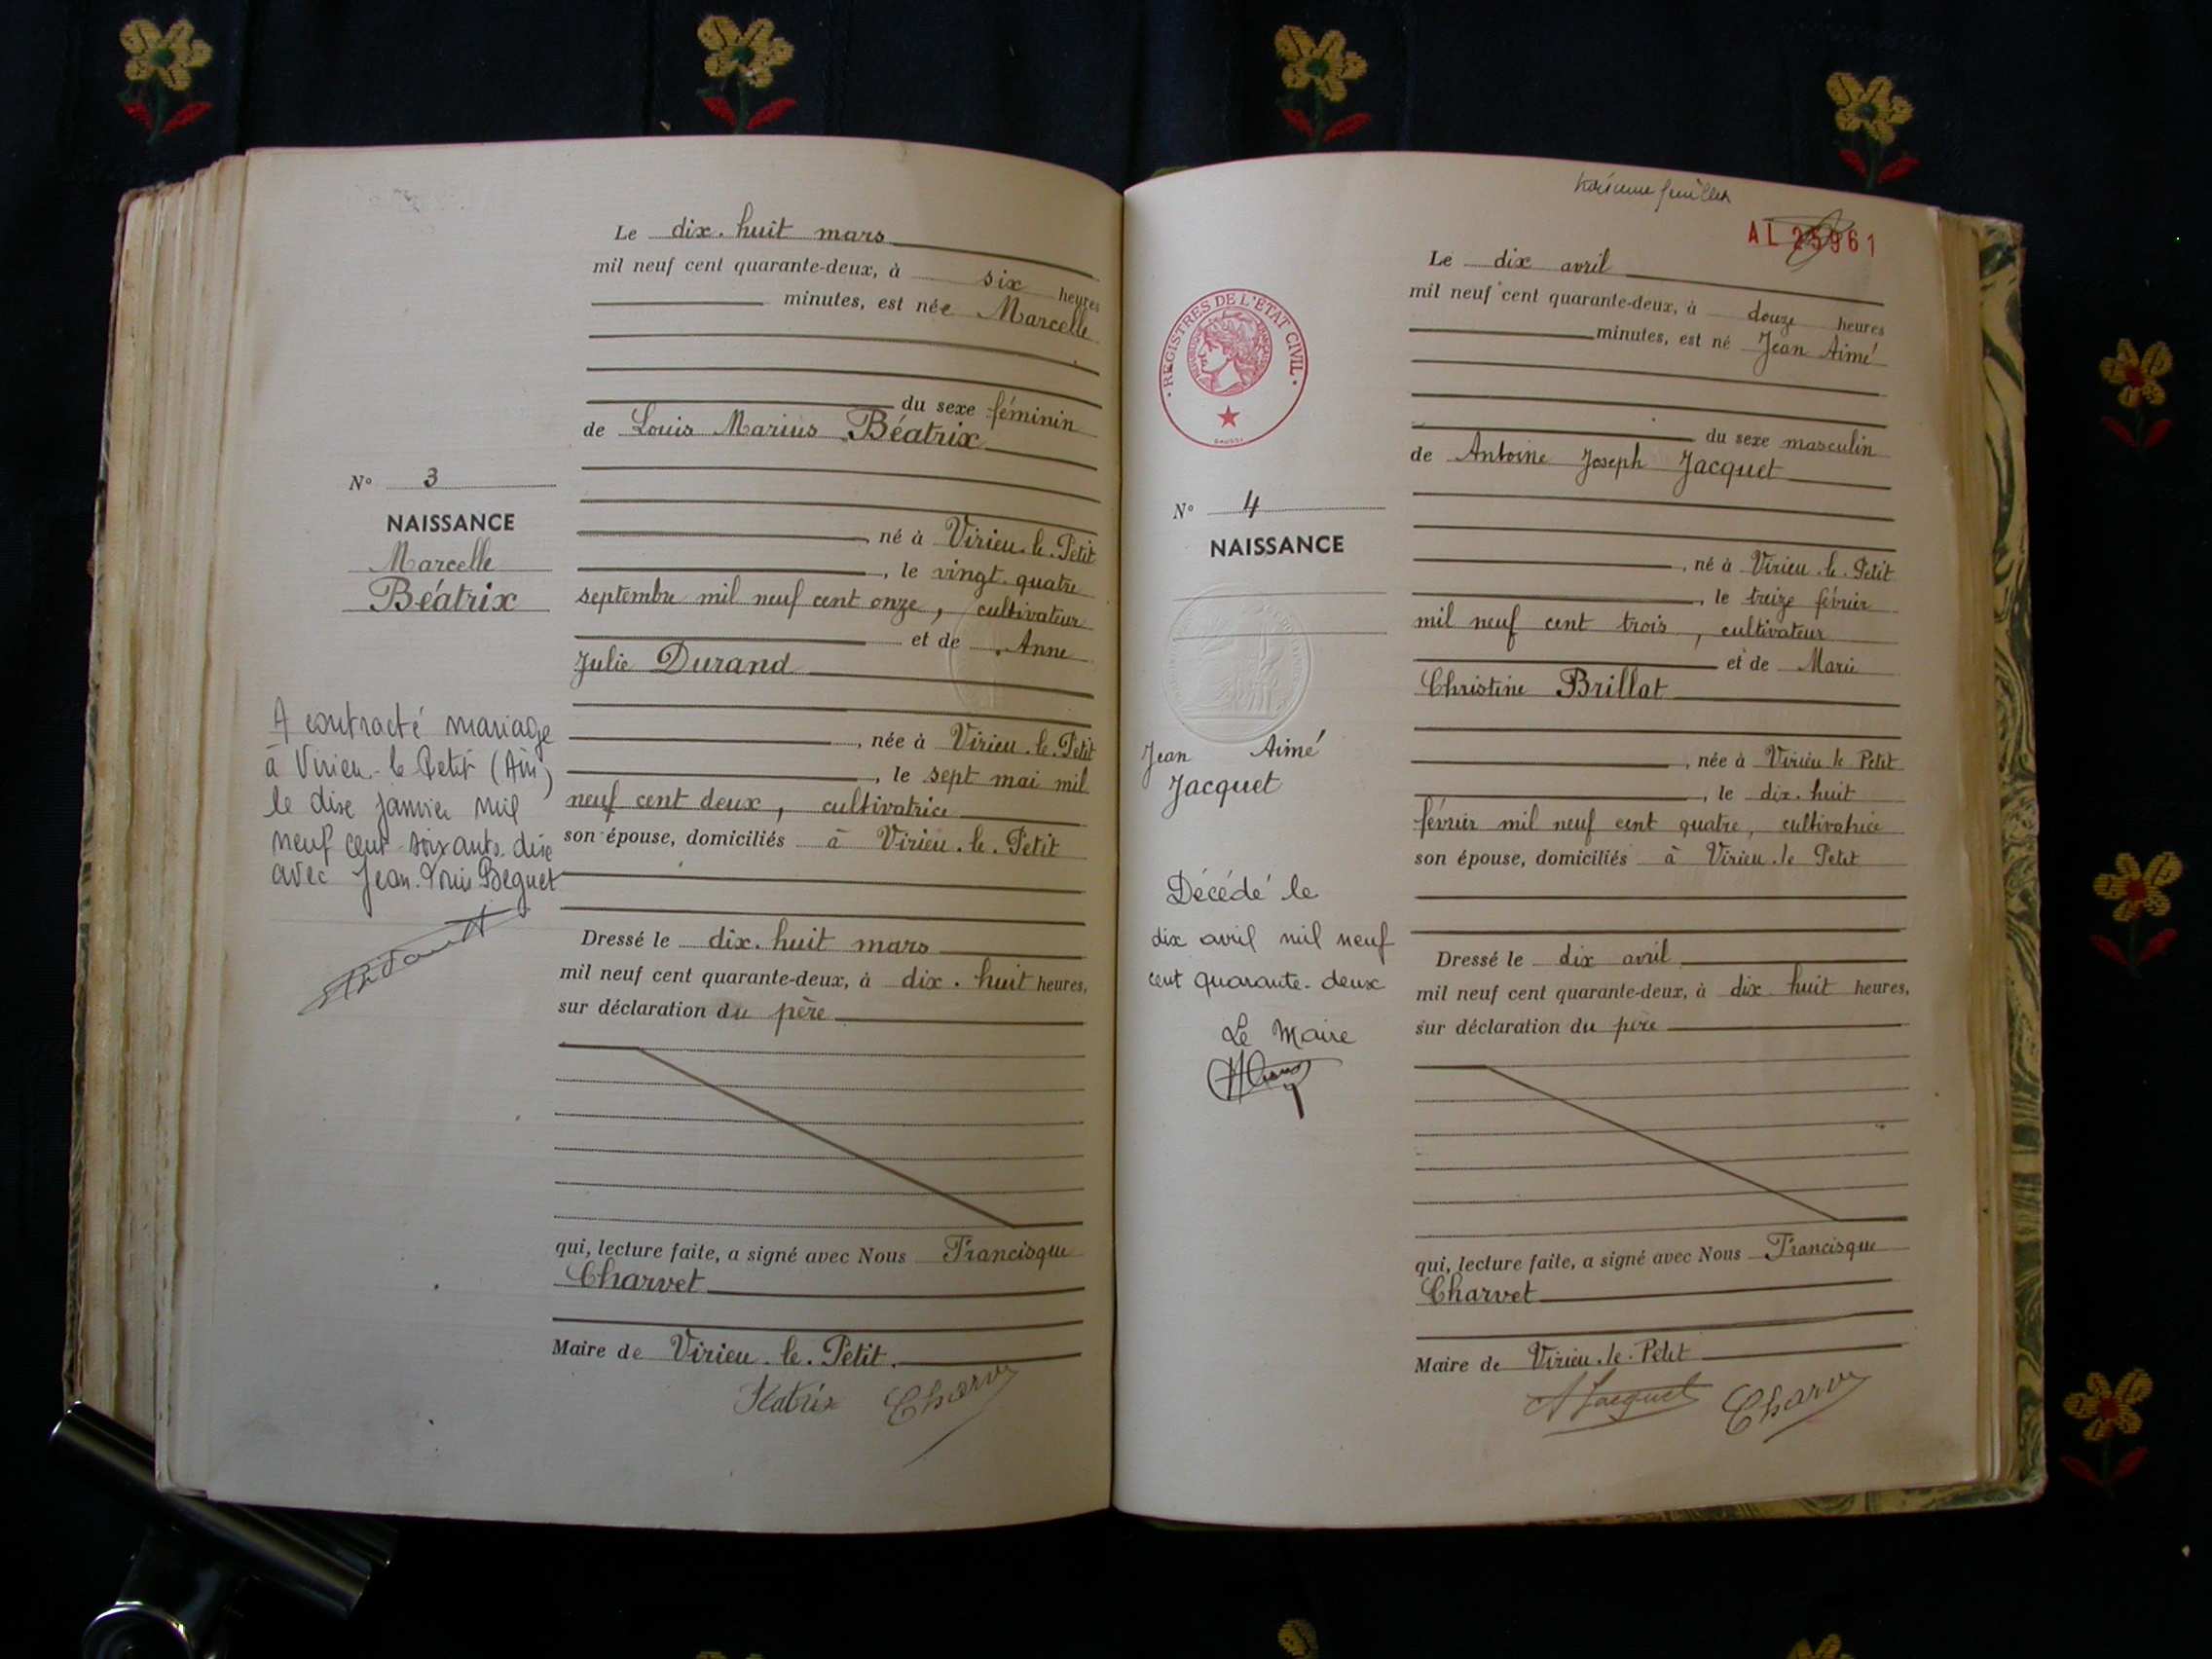 Le dix. huit mars
mil neuf cent quarante-deux, à six heures
minutes, est née Marcelle
du sexe féminin
de Louis Marius Béatrix
N° 3
NAISSANCE
Marcelle
Béatrix
né à Virieu. le. Petit
, le vingt. quatre
septembre mil neuf cent onze, cultivateur
et de Anne
Julie Durand
, née à Virieu. le. Petit
, le sept mai mil
neuf cent deux, cultivatrice
son épouse, domiciliés à Virieu. le. Petit
A contracté mariage
à Virieu-le Petit (Ain)
le dix janvier mil
neuf cent soixante. dix
avec Jean-Louis Beguet
Dressé le dix. huit mars
mil neuf cent quarante-deux, à dix. huit heures,
sur déclaration du père
qui, lecture faite, a signé avec Nous Francisque
Charvet
Maire de Virieu. le. Petit.
AL 25961
Le dix avril
mil neuf cent quarante-deux, à douze heures
minutes, est né Jean Aimé
REGISTRES DE L'ÉTAT CIVIL
du sexe masculin
de Antoine Joseph Jacquet
N° 4
NAISSANCE
Jean Aimé
Jacquet
, né à Virieu. le. Petit
, le treize février
mil neuf cent trois, cultivateur
et de Marie
Christine Brillat
, née à Virieu le Petit
, le dix. huit
février mil neuf cent quatre, cultivatrice
son épouse, domiciliés à Virieu. le Petit
Décédé le
dix avril mil neuf
cent quarante-deux
Le Maire
Dressé le dix avril
mil neuf cent quarante-deux, à dix huit heures,
sur déclaration du père
qui, lecture faite, a signé avec Nous Francisque
Charvet
Maire de Virieu. le. Petit
A Jacquet